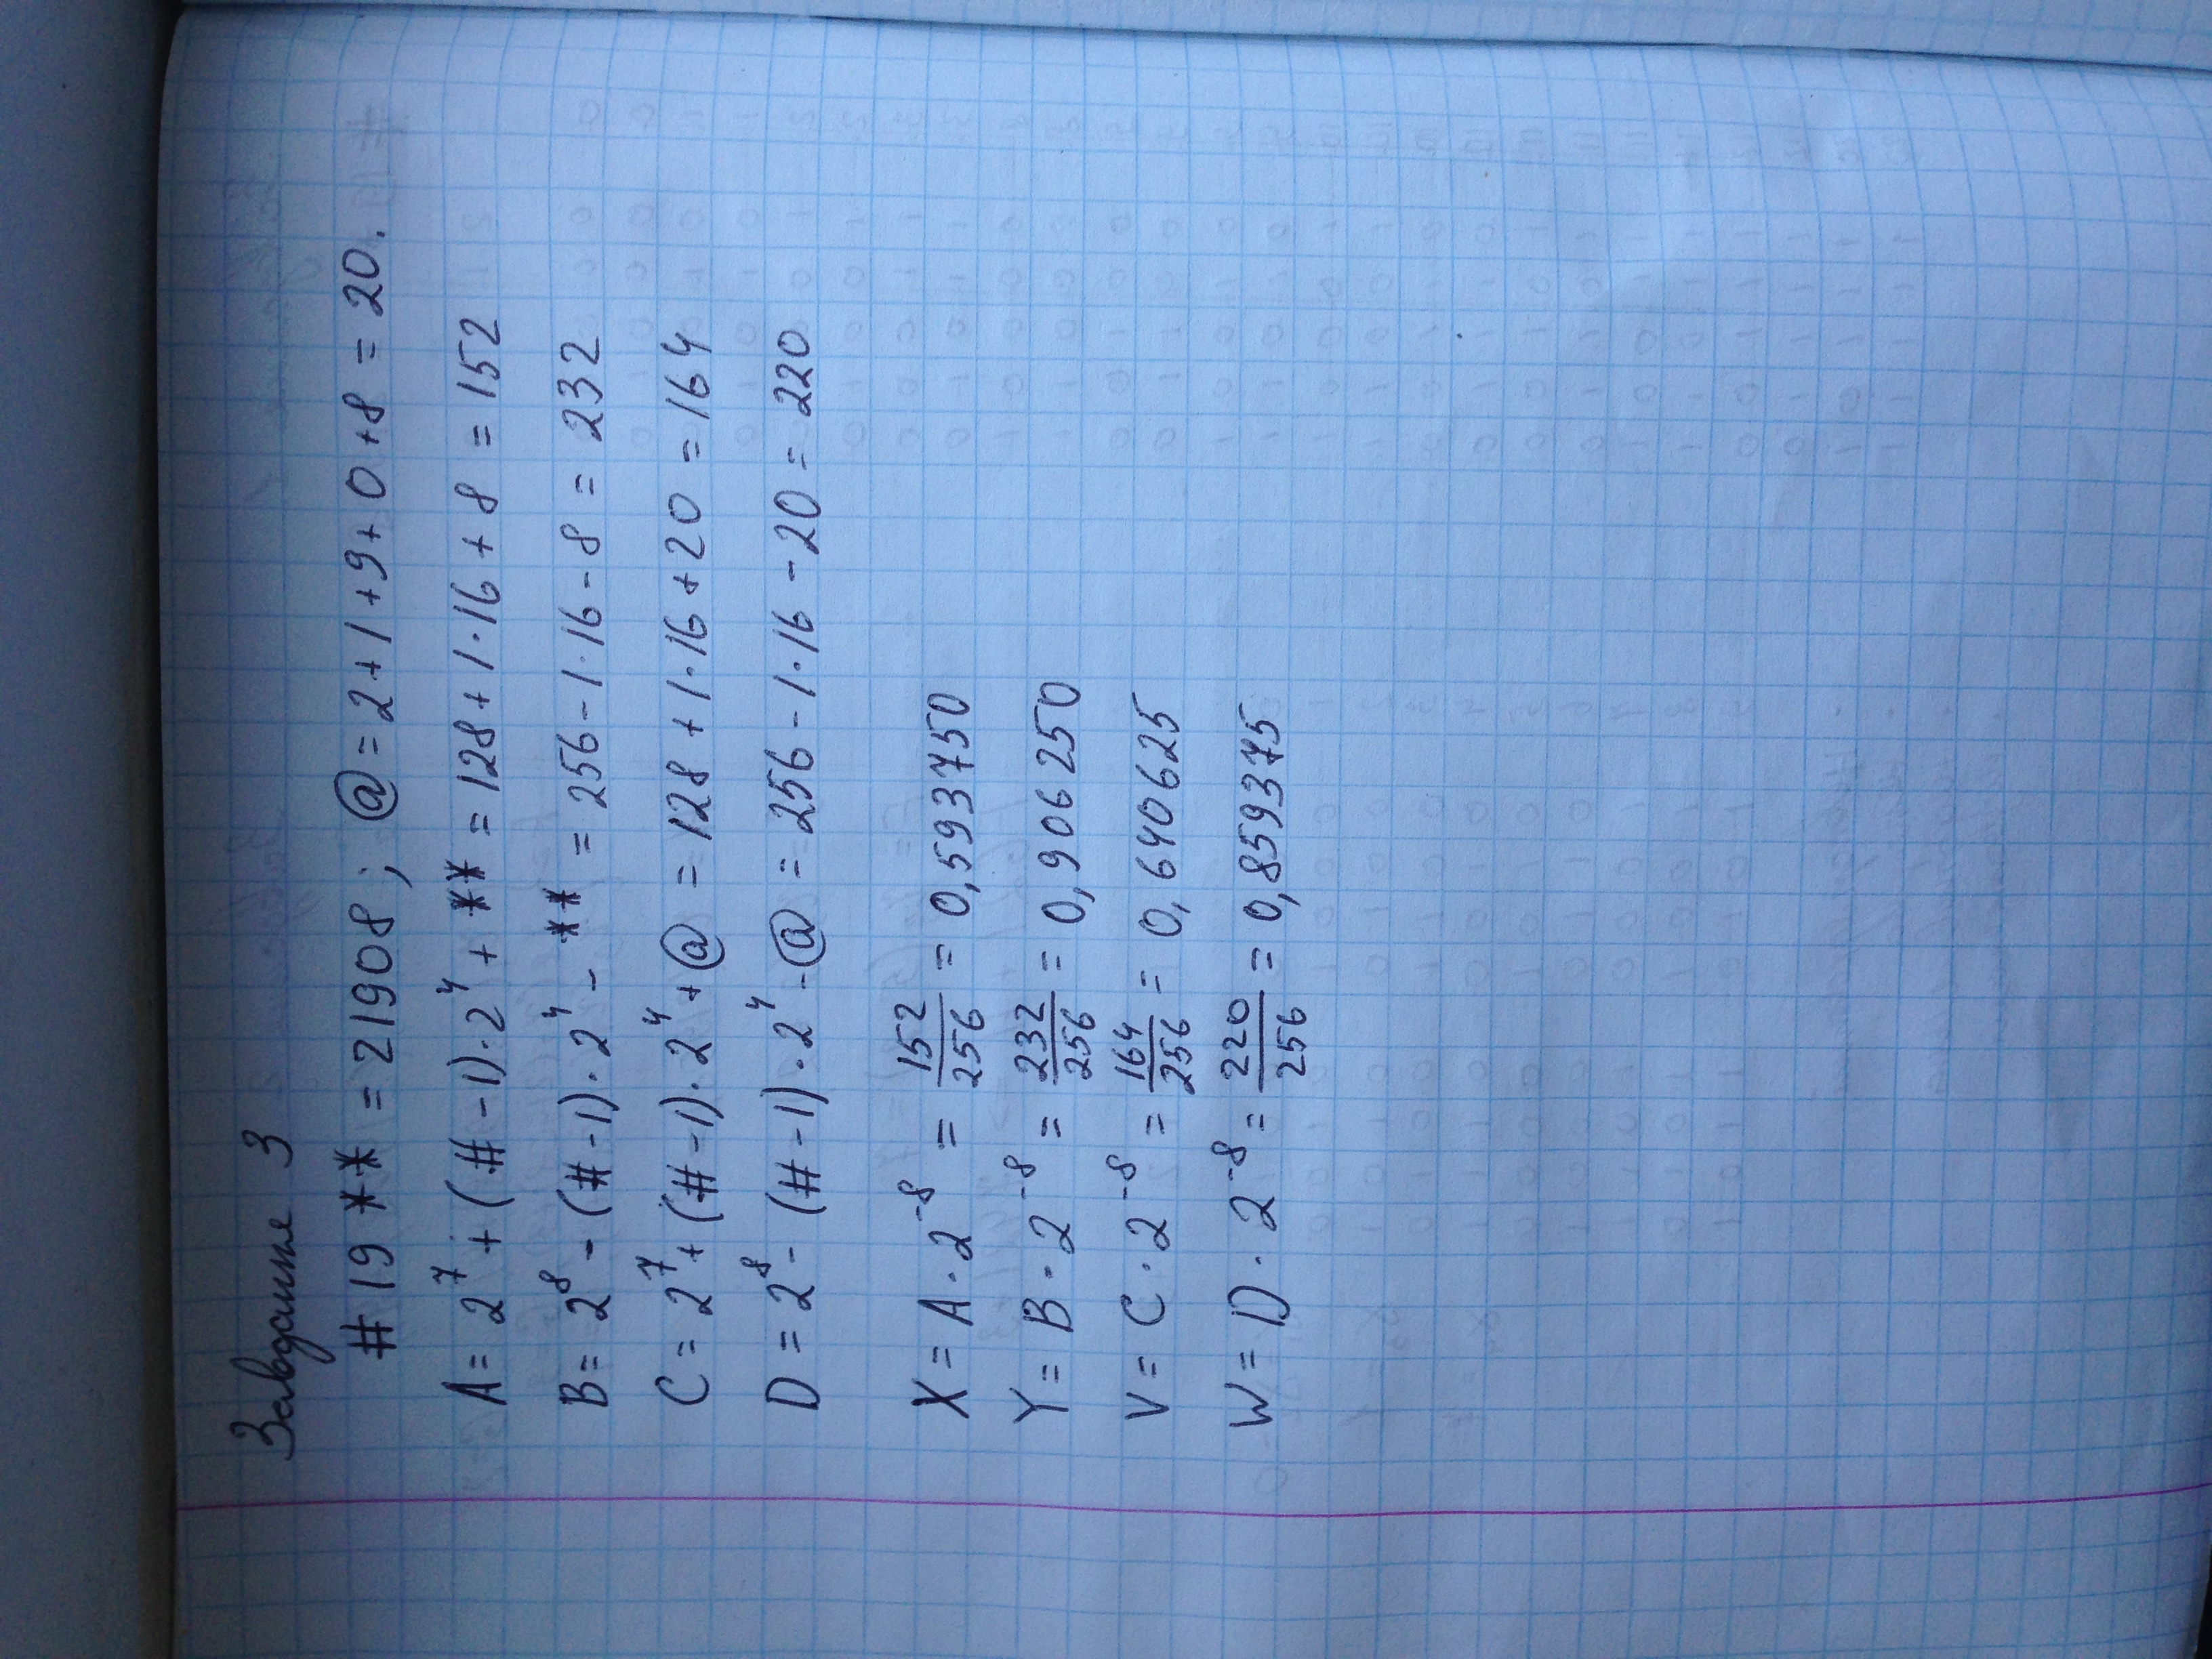 Завдання 3
# 19 ** = 21908; @ = 2+1+9+0+8 = 20.
A = 2⁷ + (# - 1)·2⁴ + ** = 128 + 1·16 + 8 = 152
B = 2⁸ - (# - 1)·2⁴ - ** = 256 - 1·16 - 8 = 232
C = 2⁷ + (# - 1)·2⁴ + @ = 128 + 1·16 + 20 = 164
D = 2⁸ - (# - 1)·2⁴ - @ = 256 - 1·16 - 20 = 220
X = A · 2⁻⁸ = 152/256 = 0,593750
Y = B · 2⁻⁸ = 232/256 = 0,906250
V = C · 2⁻⁸ = 164/256 = 0,640625
W = D · 2⁻⁸ = 220/256 = 0,859375